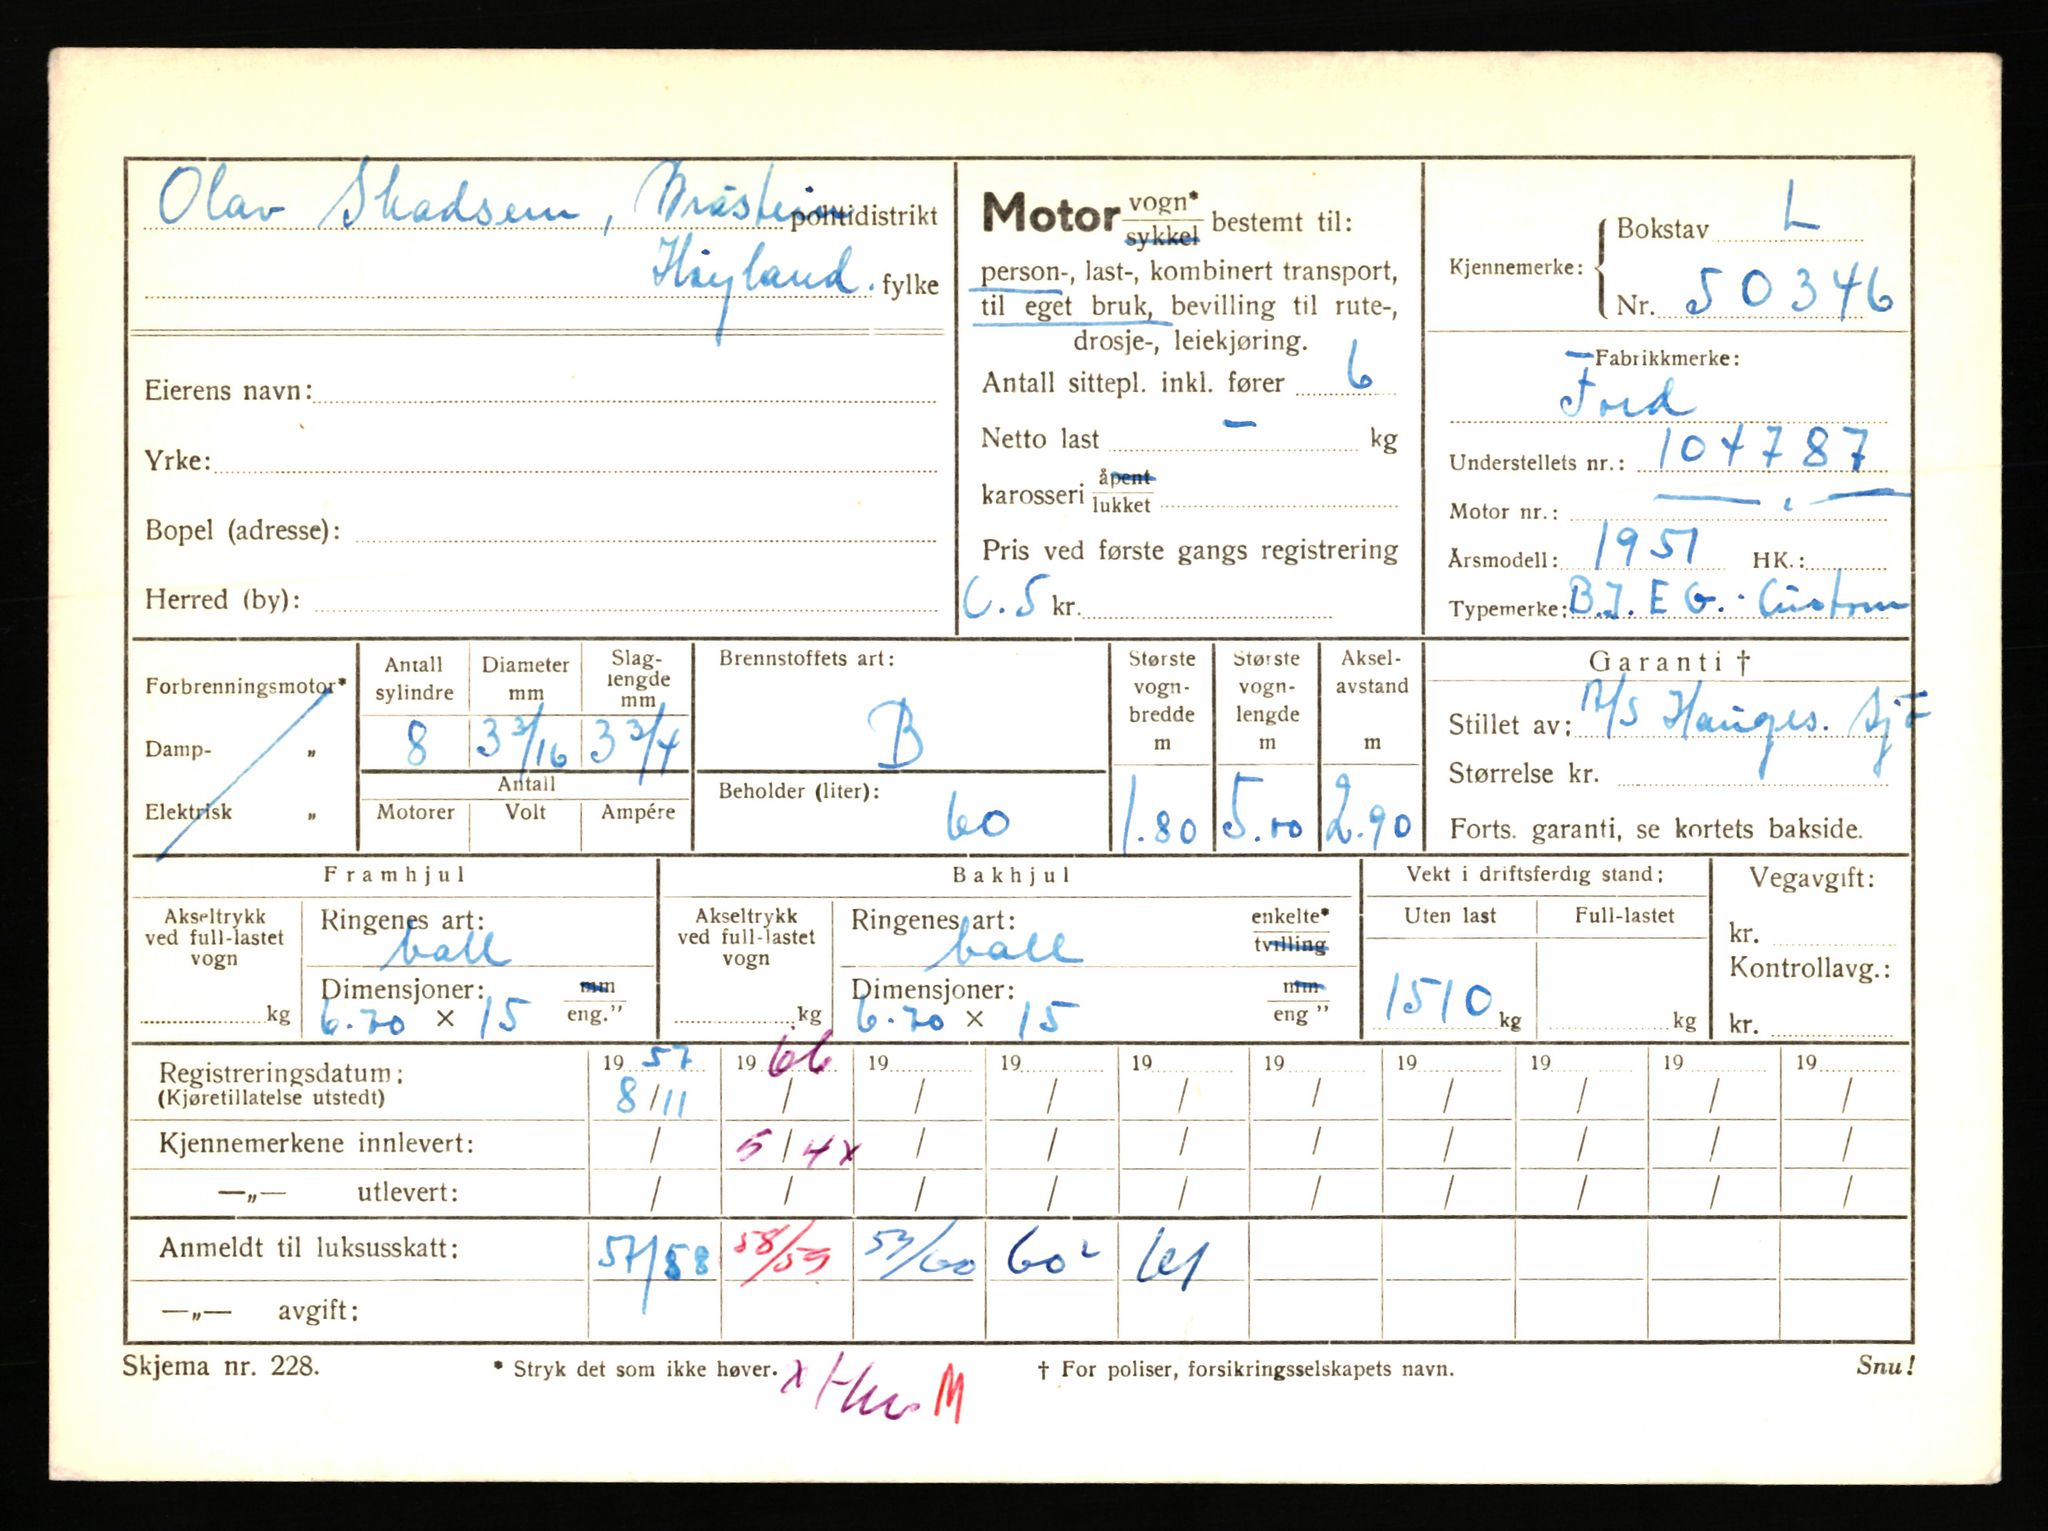 Olav Skadsem, Bråstein politidistrikt
Høyland. fylke
Eierens navn:
Yrke:
Bopel (adresse):
Herred (by):
Motor vogn* sykkel bestemt til:
person-, last-, kombinert transport,
til eget bruk, bevilling til rute-,
drosje-, leiekjøring.
Antall sittepl. inkl. fører 6
Netto last — kg
karosseri åpent lukket
Pris ved første gangs registrering
kr.
Kjennemerke: Bokstav L
Nr. 50346
Fabrikkmerke:
Ford
Understellets nr.: 104787
Motor nr.:
Årsmodell: 1951 HK.:
Typemerke: Custom
Forbrenningsmotor*
Damp- „
Elektrisk „
Antall sylindre 8
Diameter mm 3 3/16
Slaglengde mm 3 3/4
Antall
Motorer Volt Ampére
Brennstoffets art:
B
Beholder (liter):
60
Største vogn-bredde m 1.80
Største vogn-lengde m 5.00
Aksel-avstand m 2.90
Garanti †
Stillet av:
Størrelse kr.
Forts. garanti, se kortets bakside.
Framhjul
Akseltrykk ved full-lastet vogn
kg
Ringenes art:
ball
Dimensjoner: mm
6.70 × 15 eng."
Bakhjul
Akseltrykk ved full-lastet vogn
kg
Ringenes art: enkelte*
ball tvilling
Dimensjoner: mm
6.70 × 15 eng "
Vekt i driftsferdig stand:
Uten last Full-lastet
1510 kg kg
Vegavgift:
kr.
Kontrollavg.:
kr.
Registreringsdatum: 19 57 19 66 19 19 19 19 19 19 19 19
(Kjøretillatelse utstedt) 8/11 / / / / / / / / /
Kjennemerkene innlevert: / 5/4x / / / / / / / /
—„— utlevert: / / / / / / / / / /
Anmeldt til luksusskatt: 57/58 58/59 59/60 60² 61
—„— avgift:
Skjema nr. 228. * Stryk det som ikke høver. † For poliser, forsikringsselskapets navn. Snu!
M